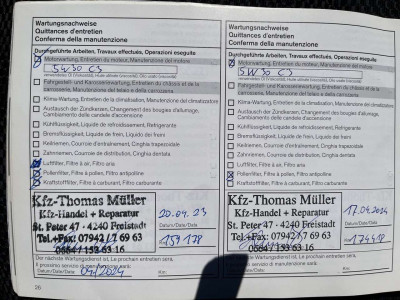 Wartungsnachweise
Quittances d'entretien
Conferme della manutenzione
Durchgeführte Arbeiten, Travaux effectués, Operazioni eseguite
Motorwartung, Entretien du moteur, Manutenzione del motore
5W30 C3
Fahrgestell- und Karosseriewartung, Entretien du châssis et de la carrosserie, Manutenzione del telaio e della carrozzeria
Klima-Wartung, Entretien de la climatisation, Manutenzione del climatizzatore
Austausch der Zündkerzen, Changement des bougies d'allumage, Cambiamento delle candele d'accensione
Kühlflüssigkeit, Liquide de refroidissement, Refrigerante
Bremsflüssigkeit, Liquide de frein, Liquido dei freni
Keilriemen, Courroie d'entraînement, Cinghia trapezoidale
Zahnriemen, Courroie de distribution, Cinghia dentata
Luftfilter, Filtre à air, Filtro aria
Pollenfilter, Filtre à pollen, Filtro antipolline
Kraftstofffilter, Filtre à carburant, Filtro carburante
Kfz-Thomas Müller
Kfz-Handel + Reparatur
St. Peter 47 - 4240 Freistadt
Tel.+Fax: 07942 / 7 69 63
0664 / 153 63 16
20.04.23
Datum/Date/Data
Km: 159 178
Der nächste Wartungsdienst ist fällig, Le prochain entretien sera,
Il prossimo servizio di manutenzione sarà:
04/2024
Datum/Date/Data
Km:
26
Wartungsnachweise
Quittances d'entretien
Conferma della manutenzione
Durchgeführte Arbeiten, Travaux effectués, Operazioni eseguite
Motorwartung, Entretien du moteur, Manutenzione del motore
5W30 C3
Fahrgestell- und Karosseriewartung, Entretien du châssis et de la carrosserie, Manutenzione del telaio e della carrozzeria
Klima-Wartung, Entretien de la climatisation, Manutenzione del climatizzatore
Austausch der Zündkerzen, Changement des bougies d'allumage, Cambiamento delle candele d'accensione
Kühlflüssigkeit, Liquide de refroidissement, Refrigerante
Bremsflüssigkeit, Liquide de frein, Liquido dei freni
Keilriemen, Courroie d'entraînement, Cinghia trapezoidale
Zahnriemen, Courroie de distribution, Cinghia dentata
Luftfilter, Filtre à air, Filtro aria
Pollenfilter, Filtre à pollen, Filtro antipolline
Kraftstofffilter, Filtre à carburant, Filtro carburante
Kfz-Thomas Müller
Kfz-Handel + Reparatur
St. Peter 47 - 4240 Freistadt
Tel.+Fax: 07942 / 7 69 63
0664 / 153 63 16
17.04.2024
Datum/Date/Data
Km: 174418
Der nächste Wartungsdienst ist fällig, Le prochain entretien sera,
Il prossimo servizio di manutenzione sarà:
Datum/Date/Data
Km: